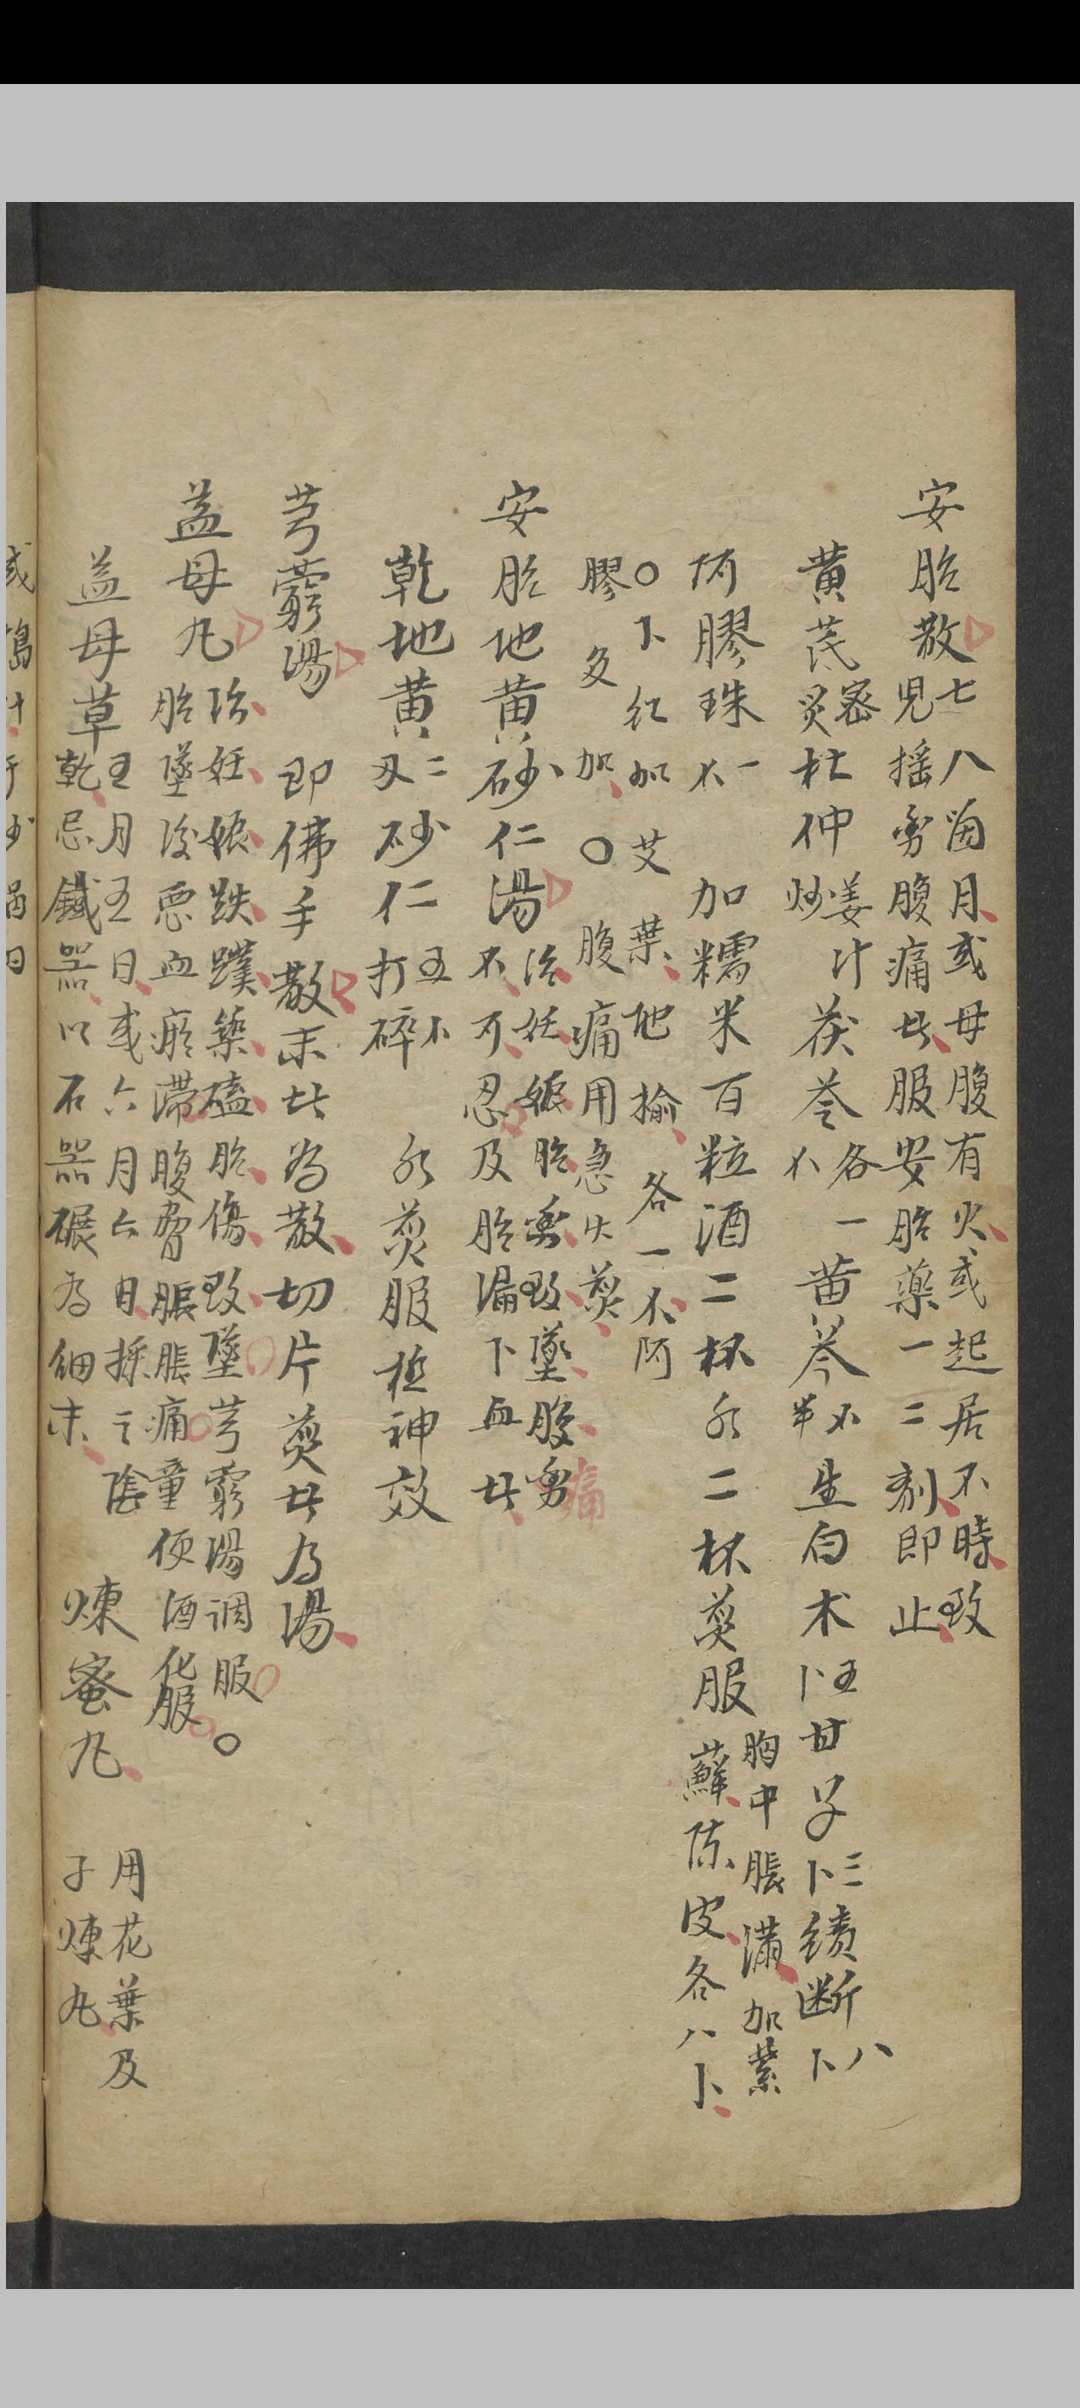 安胎散
七八箇月或母腹有火或起居不時致
児揺動腹痛此服安胎薬一二刻即止
黄芪蜜炙杜仲姜汁炒茯苓各一不黄芩不半生白朮五卜甘草三卜続断八卜
阿膠珠一不 加糯米百粒酒二杯水二杯煎服 胸中脹満加紫蘇陳皮各八卜
○下紅加艾葉地榆各一不阿
膠多加○腹痛用急火煎
安胎地黄砂仁湯
治妊娠胎動致墜腹動痛
不可忍及胎漏下血此
乾地黄二刄砂仁五不打碎 水煎服極神效
芎藭湯 即佛手散末此為散切片煎此為湯
益母丸
治妊娠跌蹼築磕胎傷致墜芎藭湯調服○
胎墜後悪血瘀滞腹脅脹脹痛童便酒化服
益母草
五月五日或六月六日採之陰
乾忌鐵器以石器碾為細末
煉蜜丸
用花葉及
子煉丸